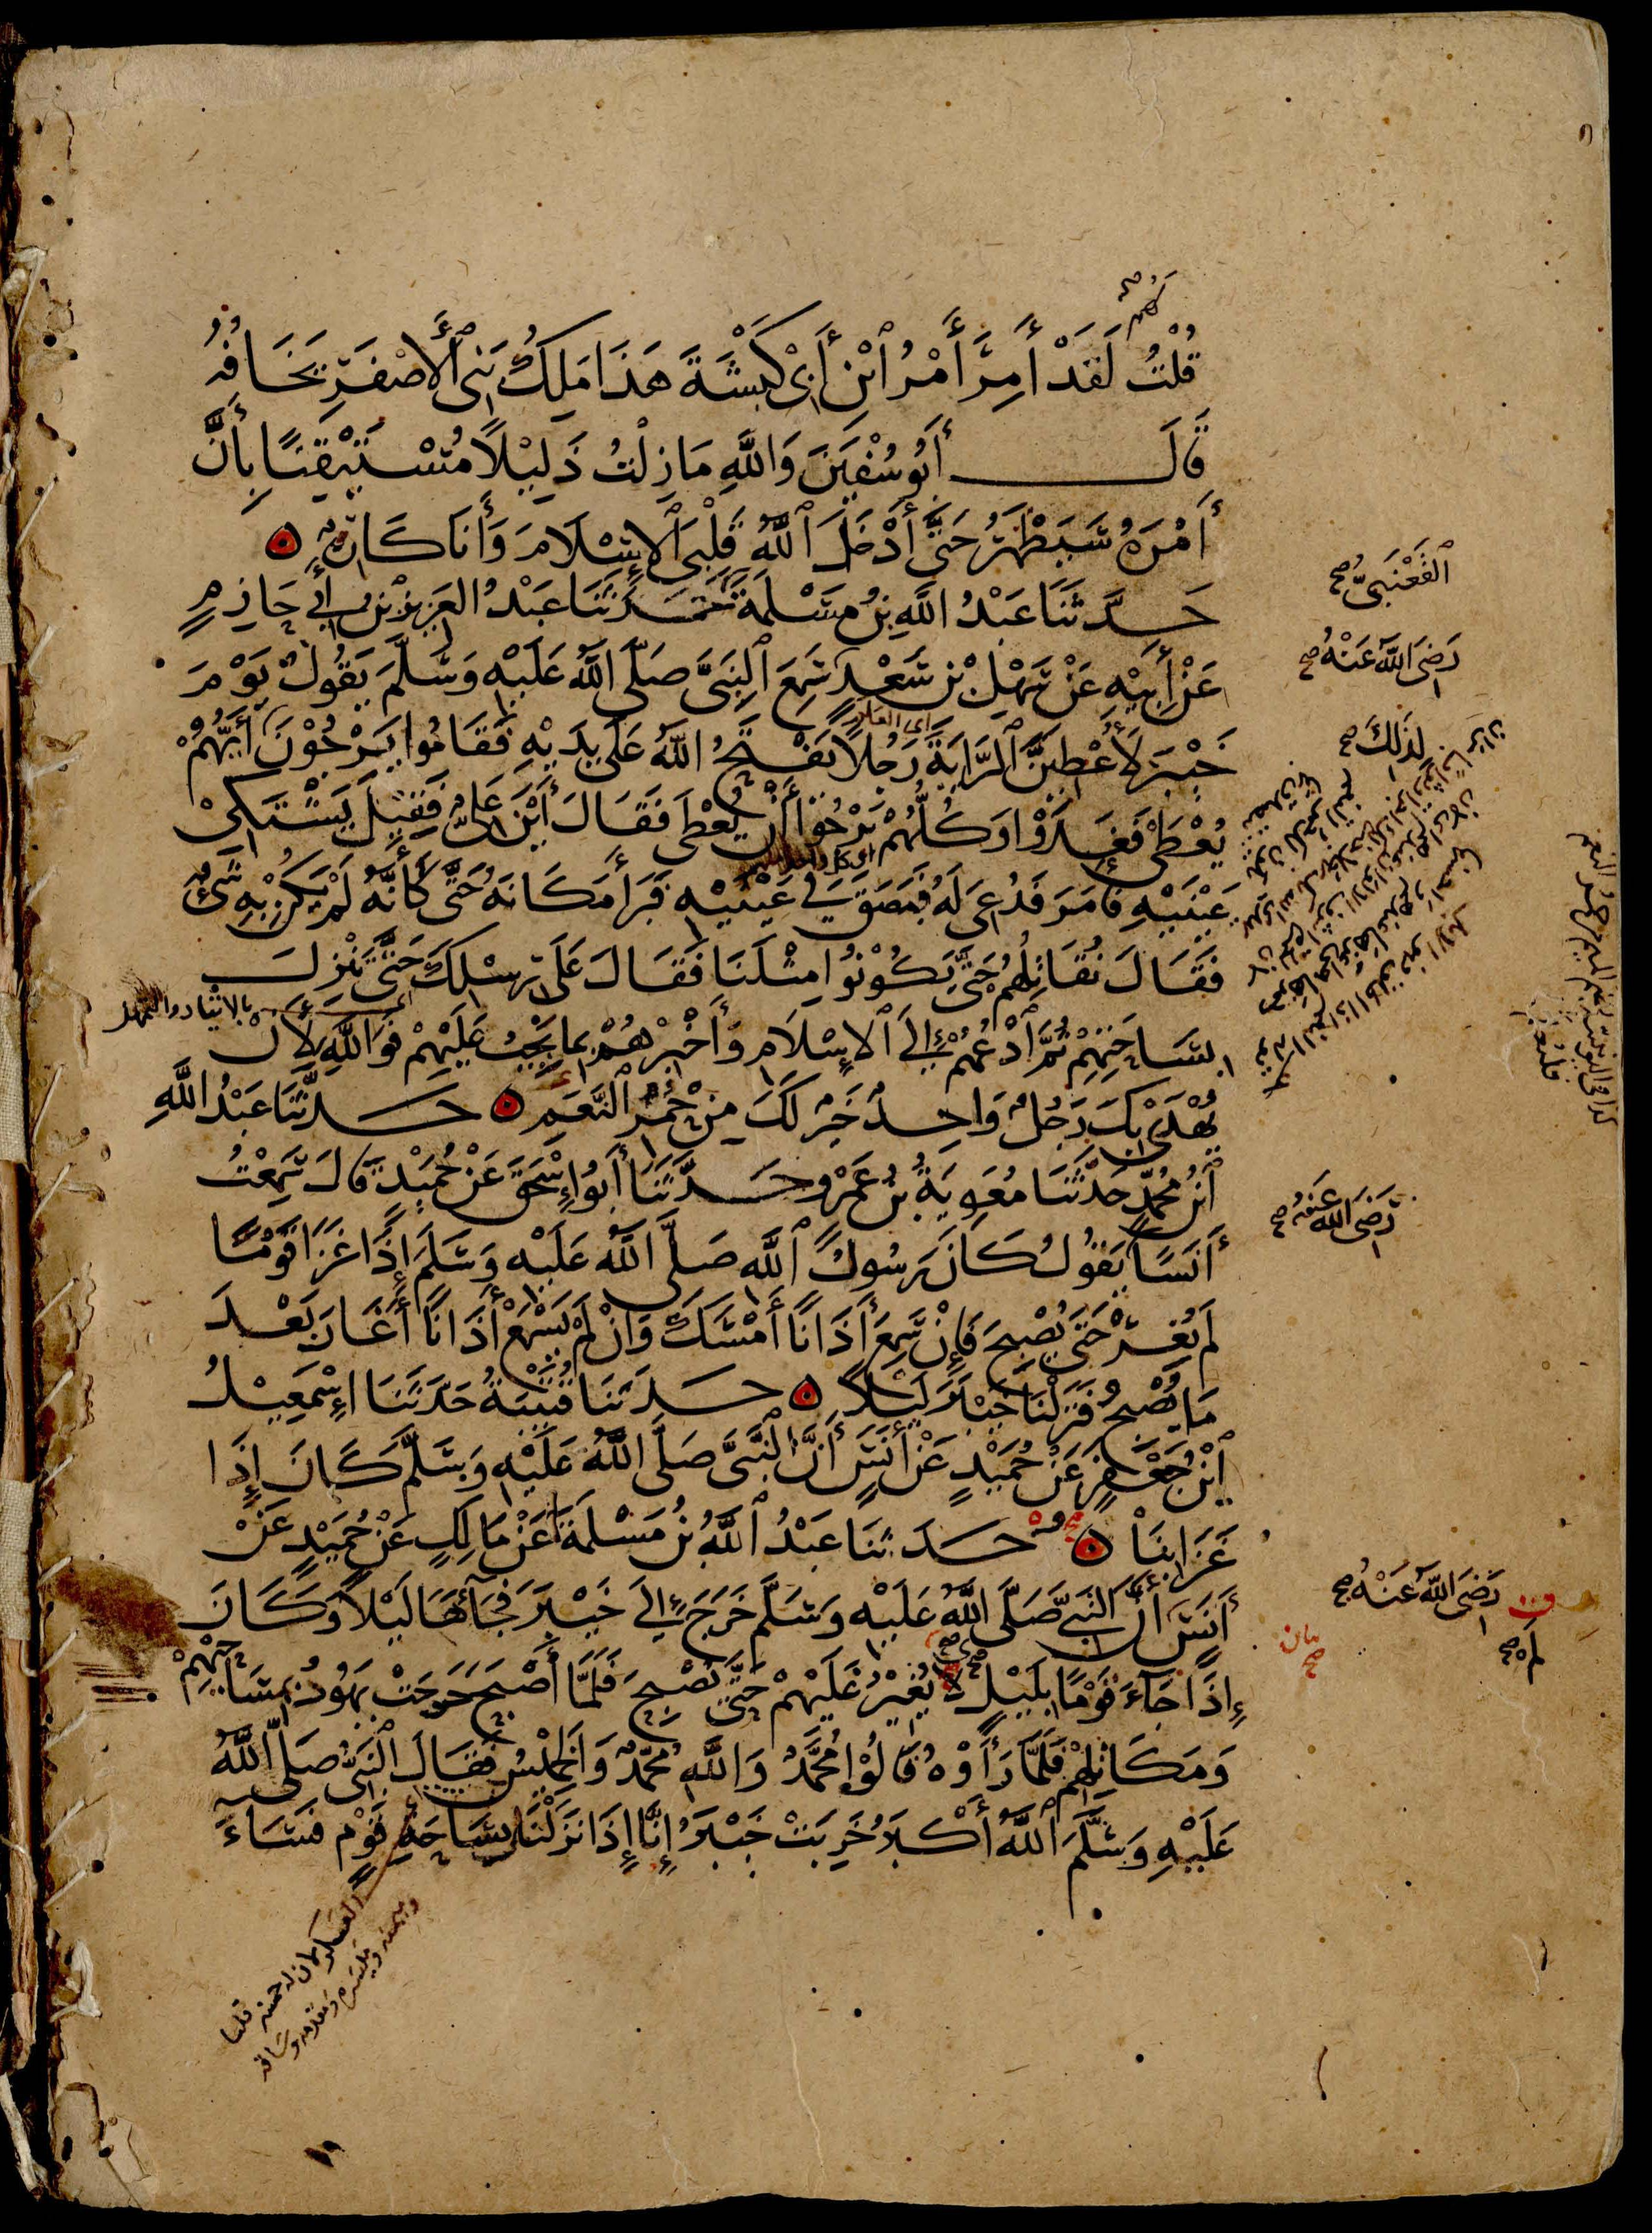 لَهُمْ صح
قُلْتُ لَقَدْ أَمِرَ أَمْرُ ٱبْنِ أَبِى كَبْشَةَ هَذَا مَلِكُ بَنِى ٱلْأَصْفَرِ يَخَافُهُ
قَالَ أَبُو سُفْيٰنَ وَاللَّهِ مَا زِلْتُ ذَلِيْلًا مُسْتَيْقِنًا بِأَنَّ
أَمْرَهُ سَيَظْهَرُ حَتَّى أَدْخَلَ ٱللَّهُ قَلْبِىَ ٱلْإِسْلَامَ وَأَنَا كَارِهٌ
حَدَّثَنَا عَبْدُ اللَّهِ بْنُ مَسْلَمَةَ حَدَّثَنَا عَبْدُ العَزِيْزِ بْنُ أَبِي حَازِمٍ
ٱلْقَعْنَبِىُّ صح
عَنْ أَبِيْهِ عَنْ سَهْلِ بْنِ سَعْدٍ سَمِعَ ٱلنَّبِىَّ صَلَّى اللَّهُ عَلَيْهِ وَسَلَّمَ يَقُولُ يَوْمَ
رَضِىَ اللَّهُ عَنْهُ صح
خَيْبَرَ لَأُعْطِيَنَّ ٱلرَّايَةَ رَجُلًا يَفْتَحُ اللَّهُ عَلَى يَدَيْهِ فَقَامُوا يَرْجُوْنَ أَيُّهُمْ
لِذٰلِكَ صح
اى العلم
يُعْطَى فَغَدَوْا وَكُلُّهُمْ يَرْجُوْا أَنْ يُعْطَى فَقَالَ أَيْنَ عَلِىٌّ فَقِيْلَ يَشْتَكِىْ
اى كل واحد منهم
عَيْنَيْهِ فَأَمَرَ فَدُعِىَ لَهُ فَبَصَقَ فِي عَيْنَيْهِ فَبَرَأَ مَكَانَهُ حَتَّى كَأَنَّهُ لَمْ يَكُنْ بِهِ شَىْءٌ
فَقَالَ نُقَاتِلُهُمْ حَتَّى يَكُوْنُوا مِثْلَنَا فَقَالَ عَلَى رِسْلِكَ حَتَّى تَنْزِلَ
بِسَاحَتِهِمْ ثُمَّ ٱدْعُهُمْ إِلَى ٱلْإِسْلَامِ وَأَخْبِرْهُمْ بِمَا يَجِبُ عَلَيْهِمْ فَوَاللَّهِ لَأَنْ
يُهْدَى بِكَ رَجُلٌ وَاحِدٌ خَيْرٌ لَكَ مِنْ حُمْرِ ٱلنَّعَمِ حَدَّثَنَا عَبْدُ اللَّهِ
ٱبْنُ مُحَمَّدٍ حَدَّثَنَا مُعٰوِيَةُ بْنُ عَمْرٍو حَدَّثَنَا أَبُو إِسْحٰقَ عَنْ حُمَيْدٍ قَالَ سَمِعْتُ
أَنَسًا يَقُولُ كَانَ رَسُولُ ٱللَّهِ صَلَّى ٱللَّهُ عَلَيْهِ وَسَلَّمَ إِذَا غَزَا قَوْمًا
رَضِىَ اللَّهُ عَنْهُ صح
لَمْ يُغِرْ حَتَّى يُصْبِحَ فَإِنْ سَمِعَ أَذَانًا أَمْسَكَ وَإِنْ لَمْ يَسْمَعْ أَذَانًا أَغَارَ بَعْدَ
مَا يُصْبِحُ فَنَزَلْنَا خَيْبَرَ لَيْلًا حَدَّثَنَا قُتَيْبَةُ حَدَّثَنَا إِسْمٰعِيْلُ
ٱبْنُ جَعْفَرٍ عَنْ حُمَيْدٍ عَنْ أَنَسٍ أَنَّ ٱلنَّبِىَّ صَلَّى اللَّهُ عَلَيْهِ وَسَلَّمَ كَانَ إِذَا
غَزَا بِنَا حَدَّثَنَا عَبْدُ ٱللَّهِ بْنُ مَسْلَمَةَ عَنْ مَالِكٍ عَنْ حُمَيْدٍ عَنْ
أَنَسٍ أَنَّ ٱلنَّبِىَّ صَلَّى اللَّهُ عَلَيْهِ وَسَلَّمَ خَرَجَ إِلَى خَيْبَرَ فَجَاءَهَا لَيْلًا وَكَانَ
رَضِىَ اللَّهُ عَنْهُ صح
إِذَا جَاءَ قَوْمًا بِلَيْلٍ لَا يُغِيْرُ عَلَيْهِمْ حَتَّى يُصْبِحَ فَلَمَّا أَصْبَحَ خَرَجَتْ يَهُوْدُ بِمَسَاحِيْهِمْ
لَمْ صح
وَمَكَاتِلِهِمْ فَلَمَّا رَأَوْهُ قَالُوْا مُحَمَّدٌ وَاللَّهِ مُحَمَّدٌ وَالْخَمِيْسُ فَقَالَ ٱلنَّبِىُّ صَلَّى ٱللَّهُ
عَلَيْهِ وَسَلَّمَ ٱللَّهُ أَكْبَرُ خَرِبَتْ خَيْبَرُ إِنَّا إِذَا نَزَلْنَا بِسَاحَةِ قَوْمٍ فَسَاءَ